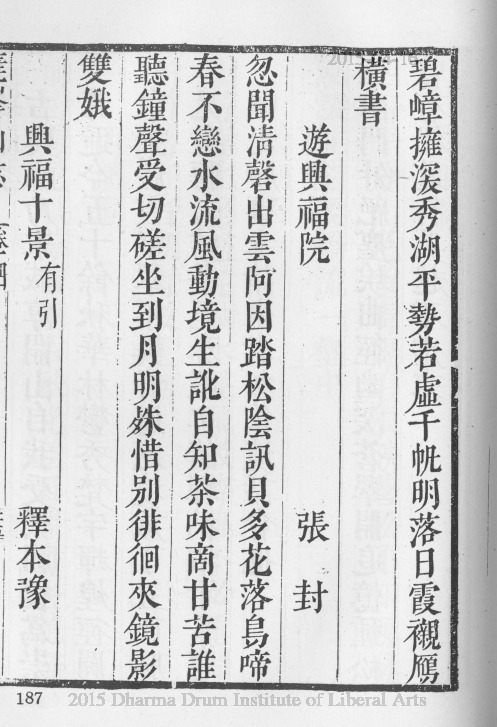 碧嶂擁深秀湖平勢若虛千帆明落日霞襯鴈
橫書
遊興福院
張封
忽聞清磬出雲阿因踏松陰訊貝多花落鳥啼
春不戀水流風動境生訛自知茶味啇甘苦誰
聽鐘聲受切磋坐到月明姝惜別徘徊夾鏡影
雙娥
興福十景有引
釋本豫
187
2015 Dharma Drum Institute of Liberal Arts